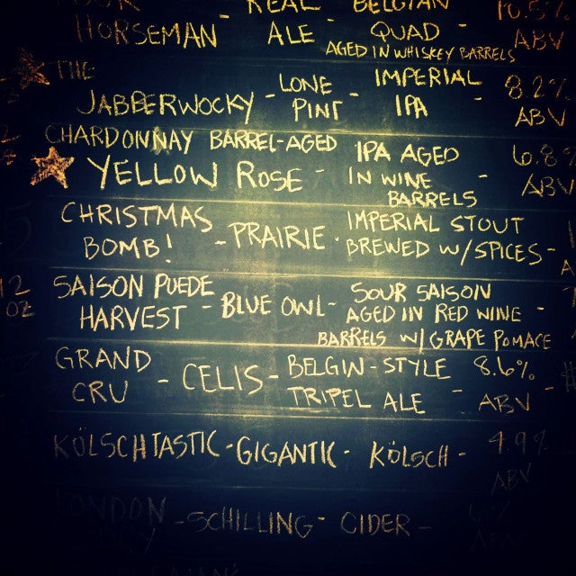 REAL BELGIAN 10.5%
HORSEMAN - ALE - QUAD ABV
AGED IN WHISKEY BARRELS
THE
JABBERWOCKY - LONE PINT - IMPERIAL IPA - 8.2% ABV
CHARDONNAY BARREL-AGED
YELLOW ROSE - IPA AGED IN WINE BARRELS 6.8% ABV
CHRISTMAS BOMB! - PRAIRIE - IMPERIAL STOUT BREWED W/SPICES -
12 OZ SAISON PUEDE HARVEST - BLUE OWL - SOUR SAISON AGED IN RED WINE -
BARRELS W/ GRAPE POMACE
GRAND CRU - CELIS - BELGIN-STYLE TRIPEL ALE - 8.6% ABV -
KÖLSCHTASTIC - GIGANTIC - KÖLSCH - 4.9% ABV
LONDON - SCHILLING - CIDER -